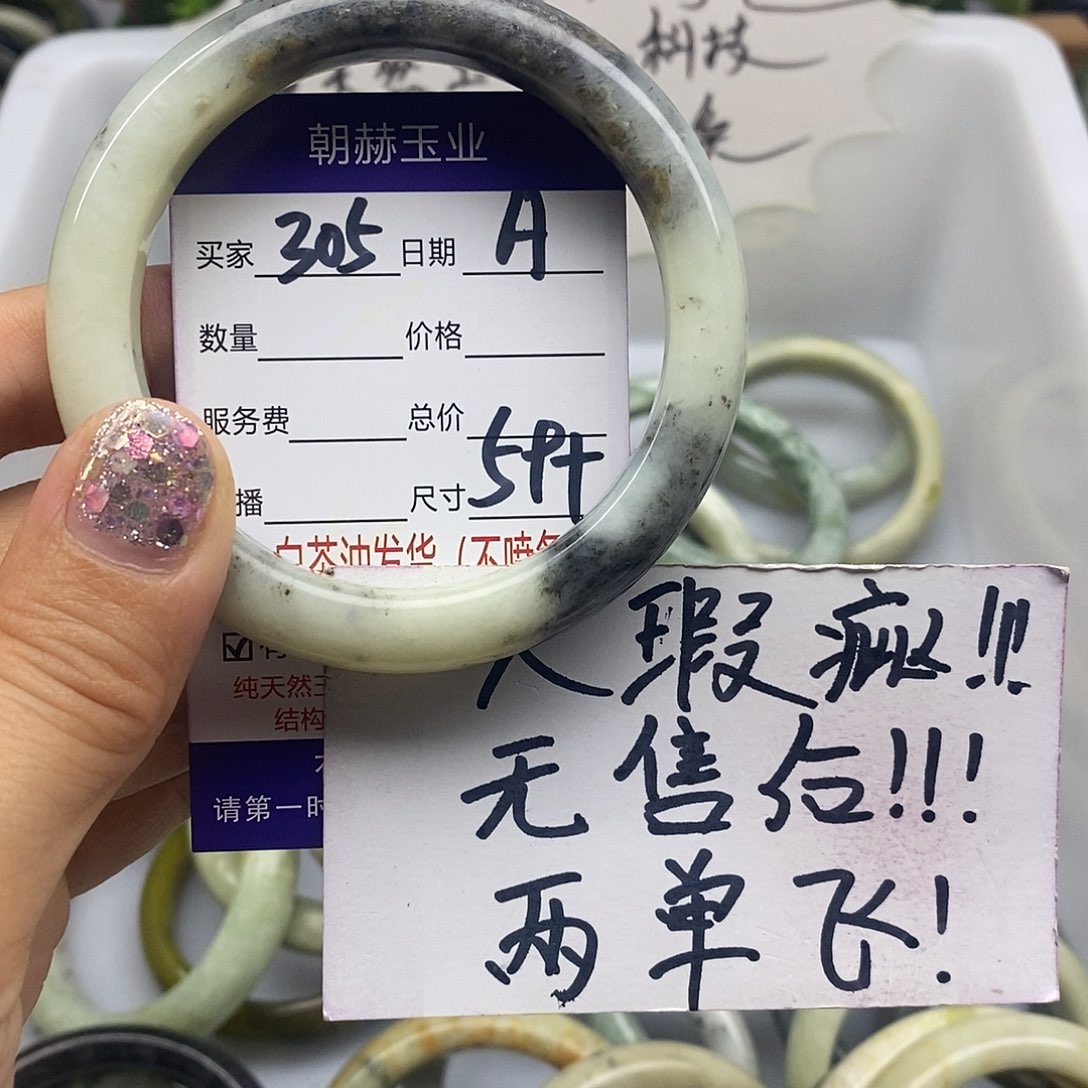 树枝
朝赫玉业
买家 305 日期 A
数量 价格
服务费 总价
播 尺寸 59+
白茶油发货（不喷
纯天然
结构
请第一时
瑕疵!!!
无售后!!!
两单飞!